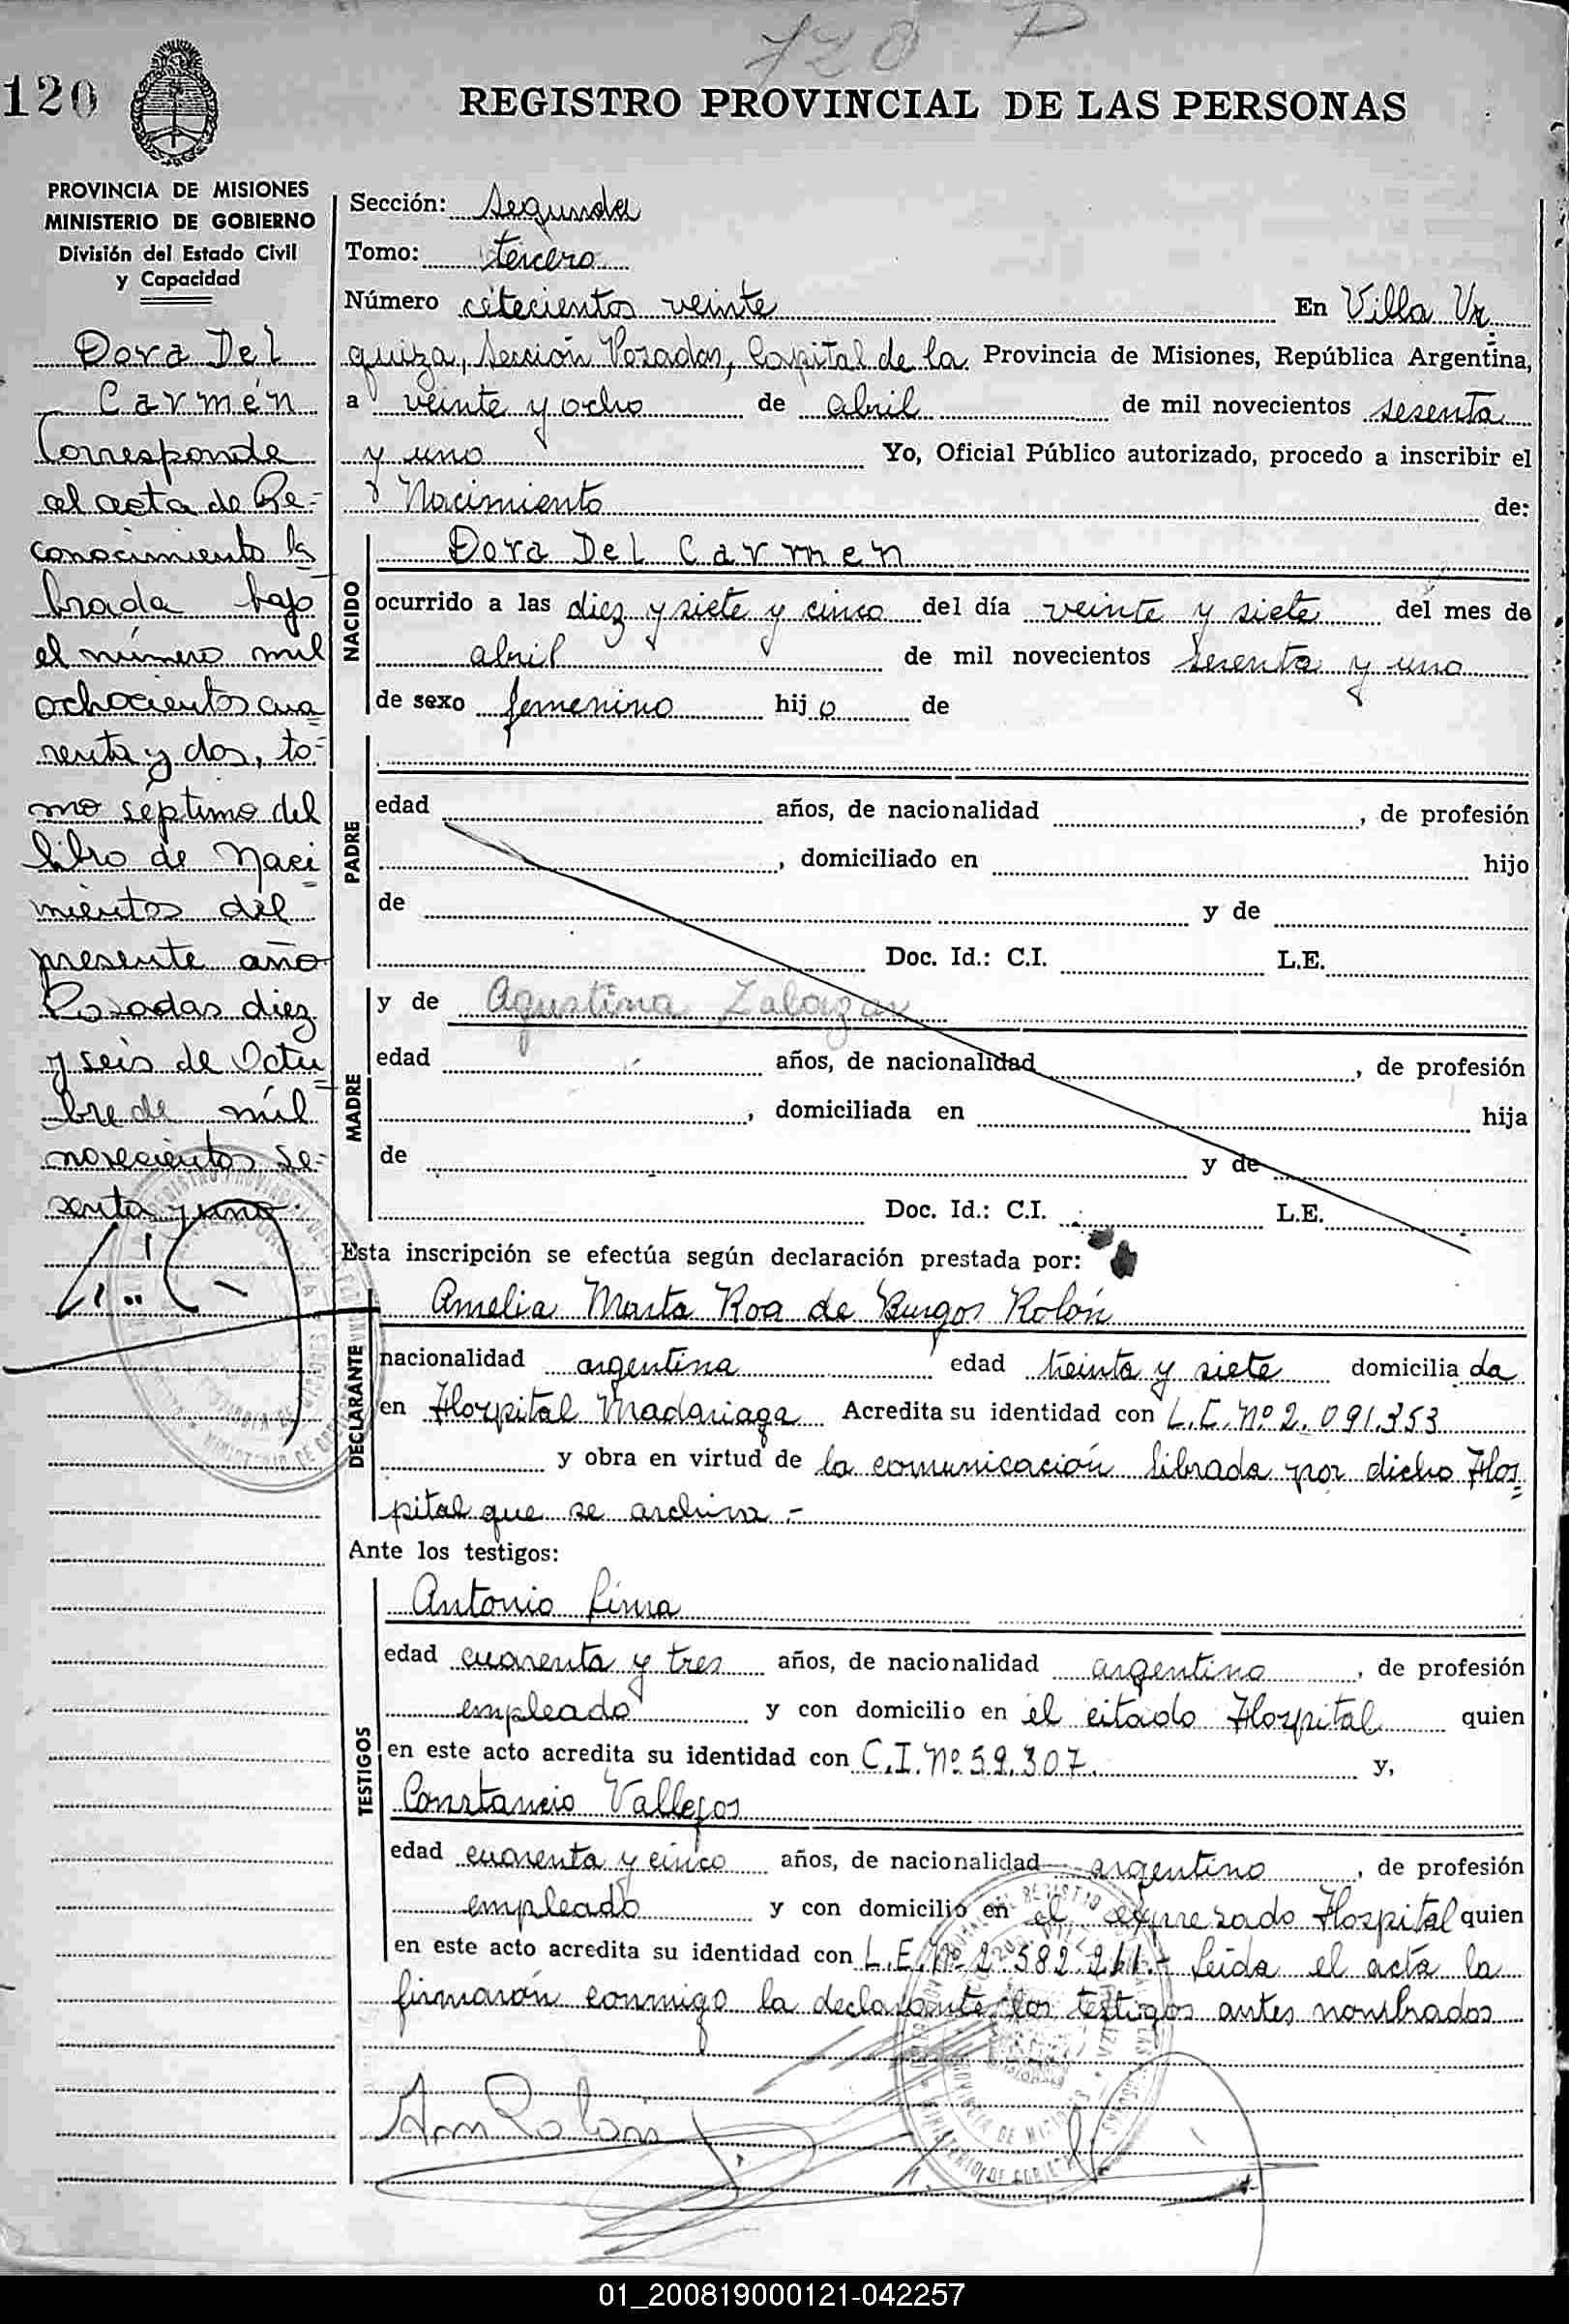 720 P
120
REGISTRO PROVINCIAL DE LAS PERSONAS
PROVINCIA DE MISIONES
MINISTERIO DE GOBIERNO
División del Estado Civil
y Capacidad
Dora Del
Carmén
Corresponde
al acta de Re-
conocimiento la
brada bajo
el número mil
ochocientos cua
renta y dos, to-
mo séptimo del
libro de Naci
mientos del
presente año
Posadas diez
y seis de Octu
bre de mil
novecientos se-
senta y uno
Sección: Segunda
Tomo: tercero
Número cetecientos veinte En Villa Ur
quiza, Sección Posadas, Capital de la Provincia de Misiones, República Argentina,
a veinte y ocho de abril de mil novecientos sesenta
y uno Yo, Oficial Público autorizado, procedo a inscribir el
Nacimiento de:
NACIDO
Dora Del Carmen
ocurrido a las diez y siete y cinco del día veinte y siete del mes de
abril de mil novecientos sesenta y uno
de sexo femenino hijo de
PADRE
edad años, de nacionalidad , de profesión
, domiciliado en hijo
de y de
Doc. Id.: C.I. L.E.
MADRE
y de Agustina Zalazar
edad años, de nacionalidad , de profesión
, domiciliada en hija
de y de
Doc. Id.: C.I. L.E.
Esta inscripción se efectúa según declaración prestada por:
DECLARANTE
Amelia Marta Roa de Burgos Rolón
nacionalidad argentina edad treinta y siete domiciliada
en Hospital Madariaga Acredita su identidad con L.C. Nº 2.091.353
y obra en virtud de la comunicación librada por dicho Hos
pital que se archiva.-
Ante los testigos:
TESTIGOS
Antonio Lima
edad cuarenta y tres años, de nacionalidad argentino, de profesión
empleado y con domicilio en el citado Hospital quien
en este acto acredita su identidad con C.I. Nº 59.307. y,
Constancio Vallejos
edad cuarenta y cinco años, de nacionalidad argentino, de profesión
empleado y con domicilio en el expresado Hospital quien
en este acto acredita su identidad con L.E. Nº 2.582.211.- Leida el acta la
firmarón conmigo la declarante los testigos antes nombrados
01_200819000121-042257